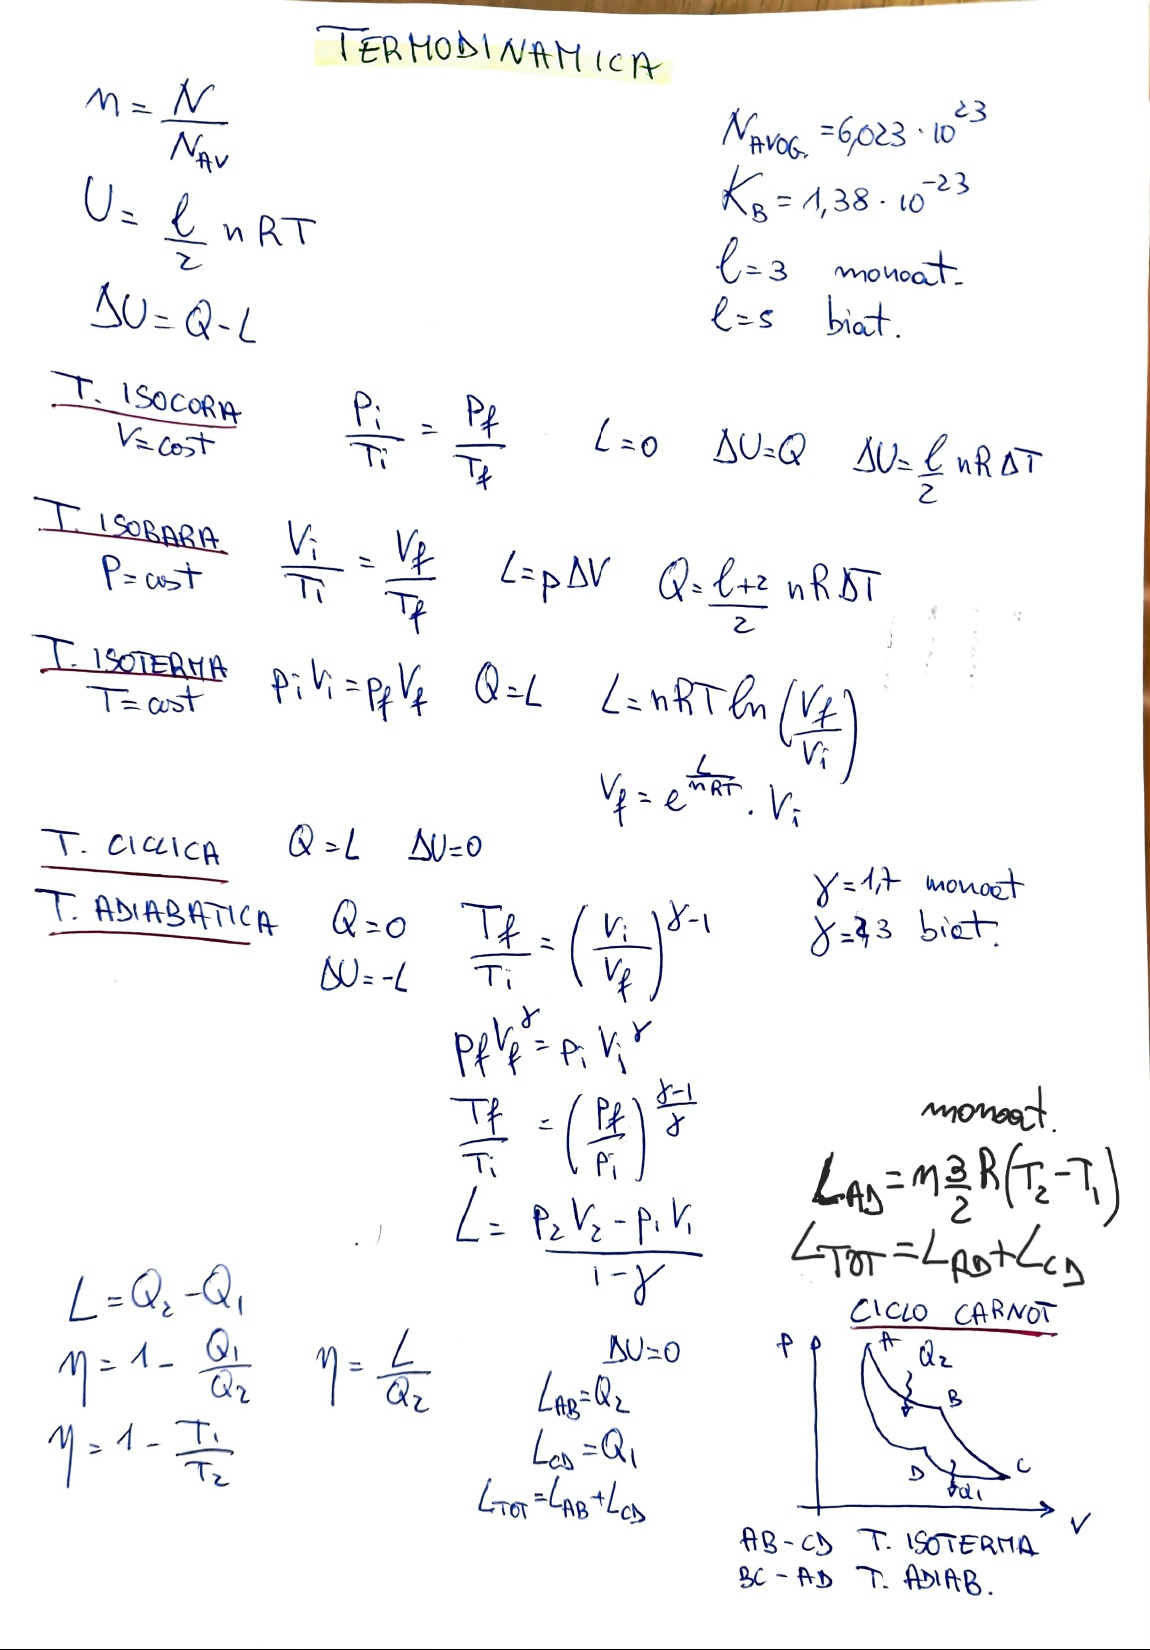 TERMODINAMICA
n = N/N_AV
N_AVOG. = 6,023 · 10^23
K_B = 1,38 · 10^-23
U = l/2 nRT
l = 3 monoat.
ΔU = Q - L
l = 5 biat.
T. ISOCORA
V = cost
Pi/Ti = Pf/Tf L = 0 ΔU = Q ΔU = l/2 nRΔT
T. ISOBARA
P = cost
Vi/Ti = Vf/Tf L = pΔV Q = (l+2)/2 nRΔT
T. ISOTERMA
T = cost
piVi = pfVf Q = L L = nRT ln(Vf/Vi)
Vf = e^(L/nRT) · Vi
T. CICLICA Q = L ΔU = 0
T. ADIABATICA Q = 0 Tf/Ti = (Vi/Vf)^(γ-1)
ΔU = -L
γ = 1,7 monoat
γ = 1,3 biat.
pfVf^γ = piVi^γ
Tf/Ti = (Pf/Pi)^((γ-1)/γ)
L = (p2V2 - p1V1)/(1-γ)
monoat.
L_AD = n 3/2 R(T2 - T1)
L_TOT = L_AD + L_CD
L = Q2 - Q1
η = 1 - Q1/Q2 η = L/Q2
η = 1 - T1/T2
ΔU = 0
L_AB = Q2
L_CD = Q1
L_TOT = L_AB + L_CD
CICLO CARNOT
P P A Q2
B
D C
Q1
V
AB - CD T. ISOTERMA
BC - AD T. ADIAB.